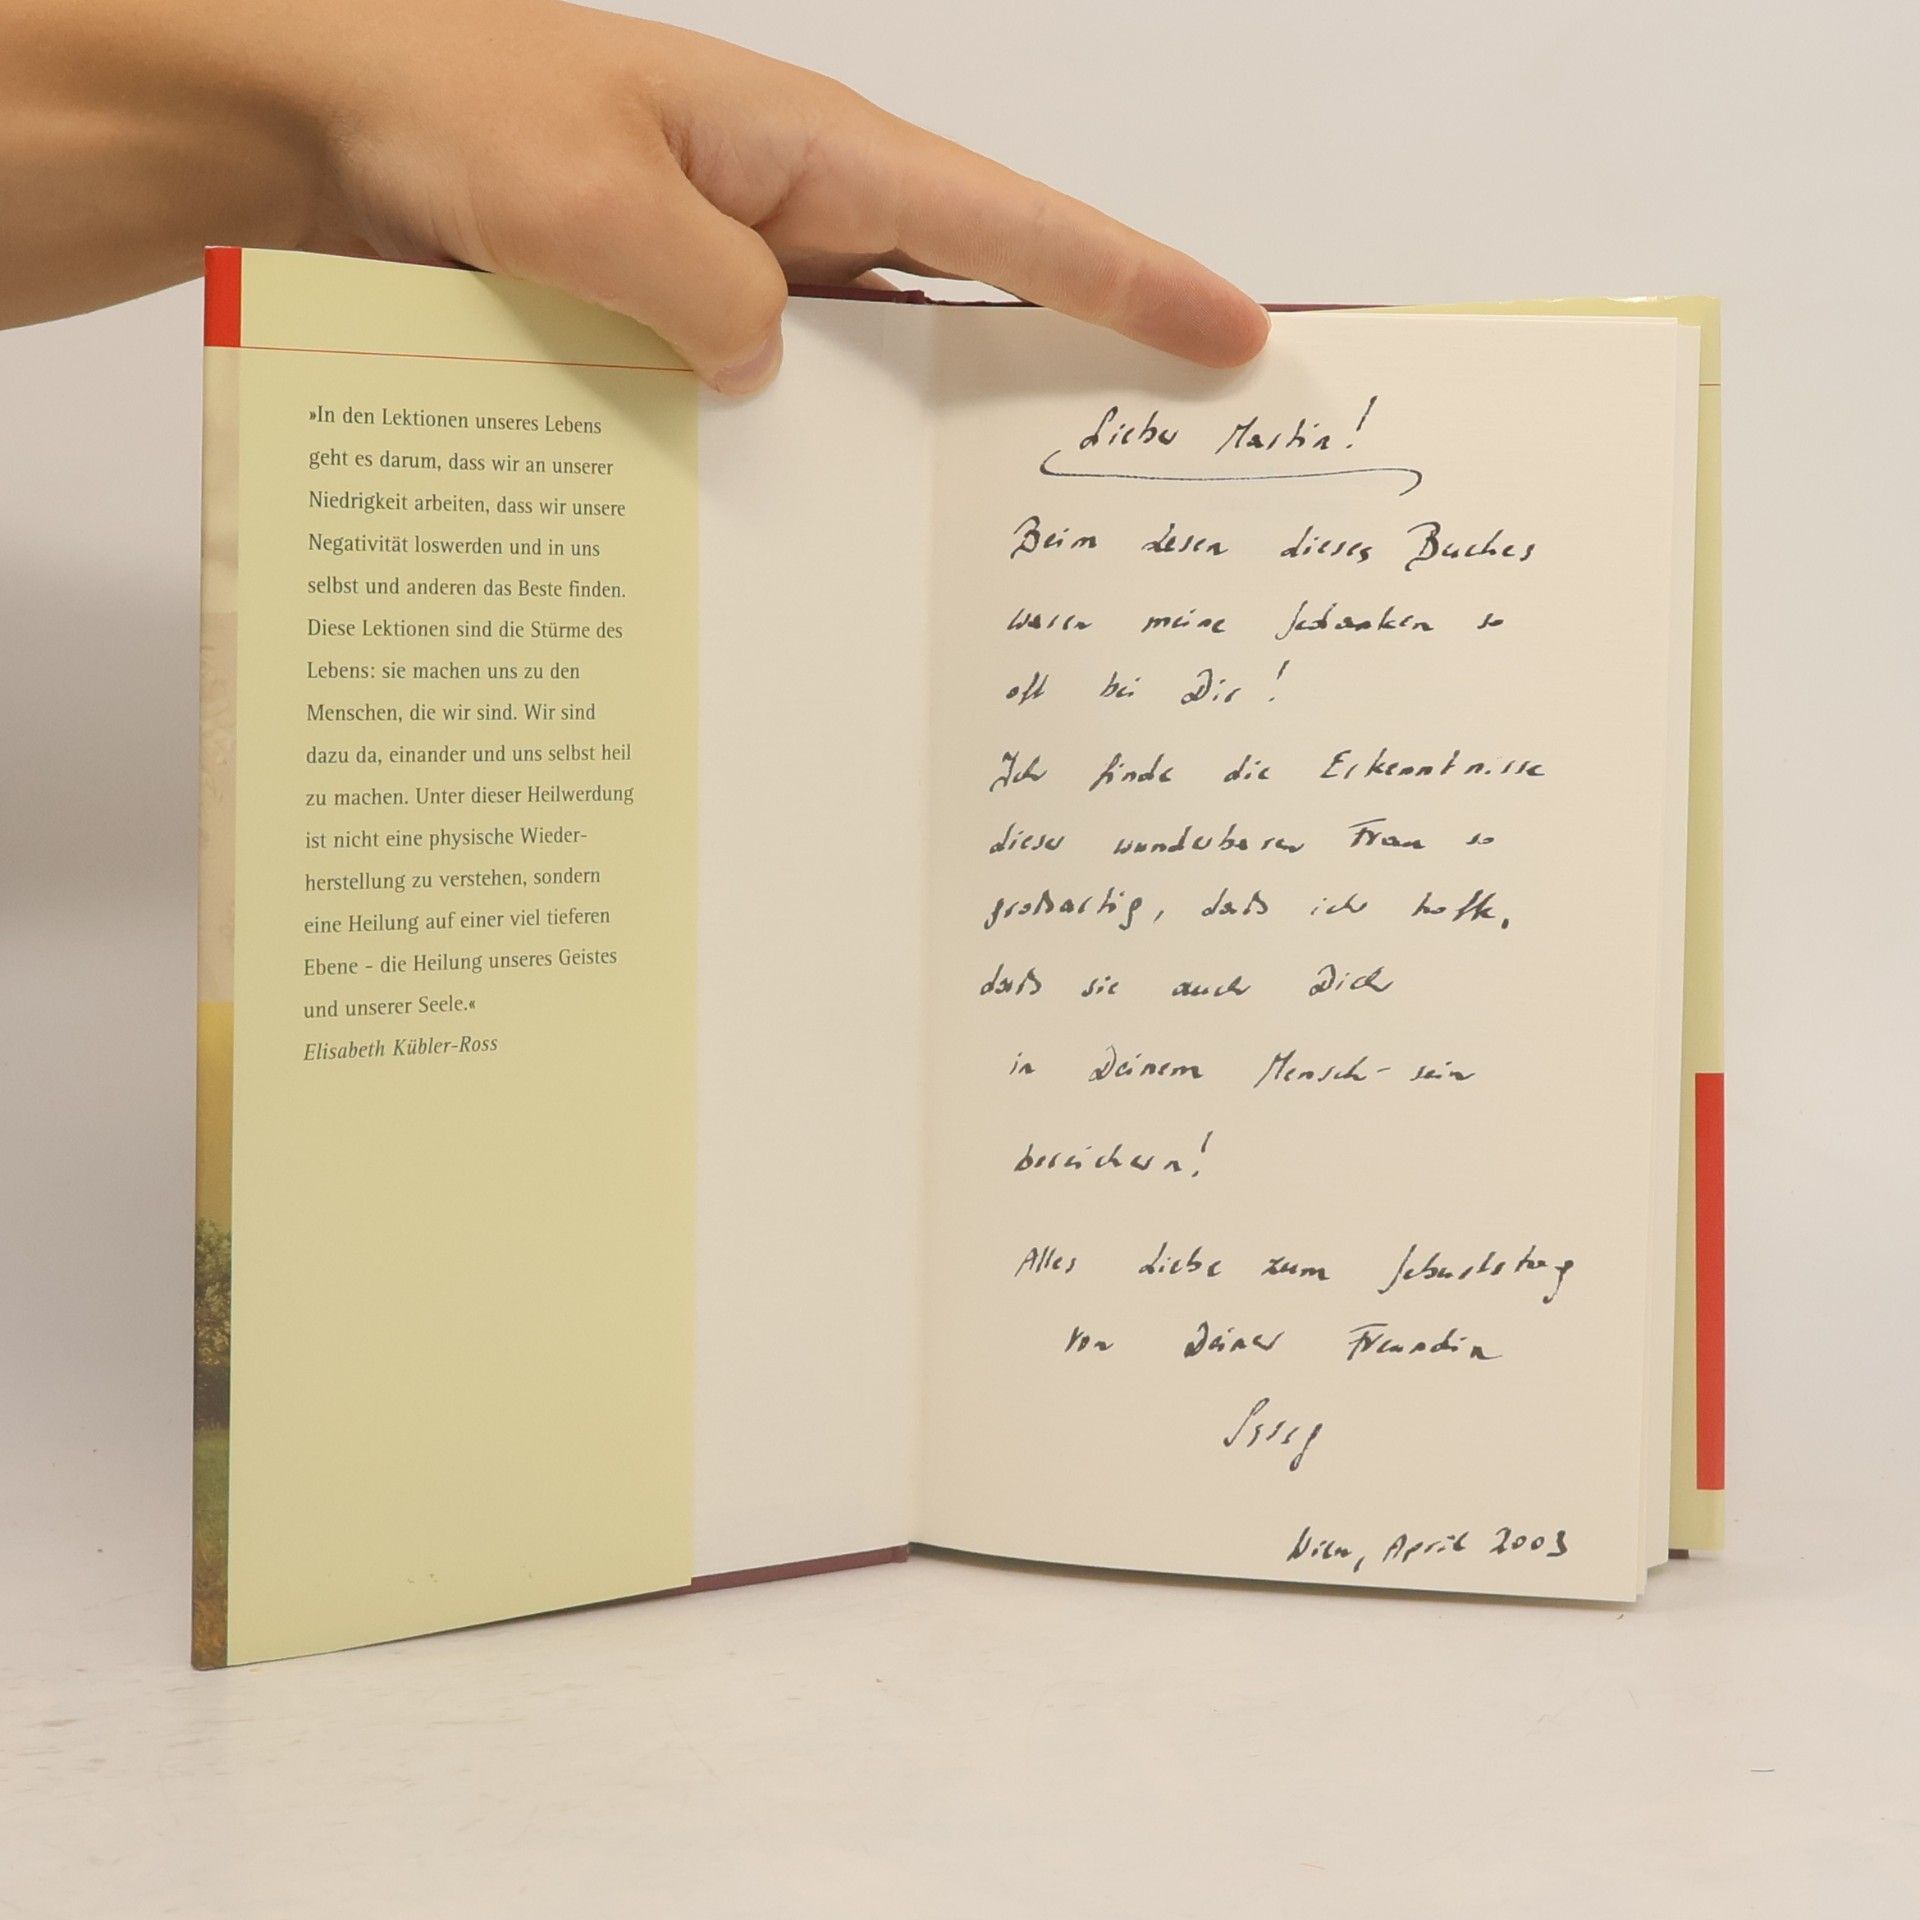 »In den Lektionen unseres Lebens
geht es darum, dass wir an unserer
Niedrigkeit arbeiten, dass wir unsere
Negativität loswerden und in uns
selbst und anderen das Beste finden.
Diese Lektionen sind die Stürme des
Lebens: sie machen uns zu den
Menschen, die wir sind. Wir sind
dazu da, einander und uns selbst heil
zu machen. Unter dieser Heilwerdung
ist nicht eine physische Wieder-
herstellung zu verstehen, sondern
eine Heilung auf einer viel tieferen
Ebene – die Heilung unseres Geistes
und unserer Seele.«
Elisabeth Kübler-Ross
Lieber Martin!
Beim Lesen dieses Buches
waren meine Gedanken so
oft bei Dir!
Ich finde die Erkenntnisse
dieser wunderbaren Frau so
großartig, daß ich hoffe,
daß sie auch Dich
in Deinem Mensch-sein
bereichern!
Alles Liebe zum Geburtstag
von Deiner Freundin
Wien, April 2003